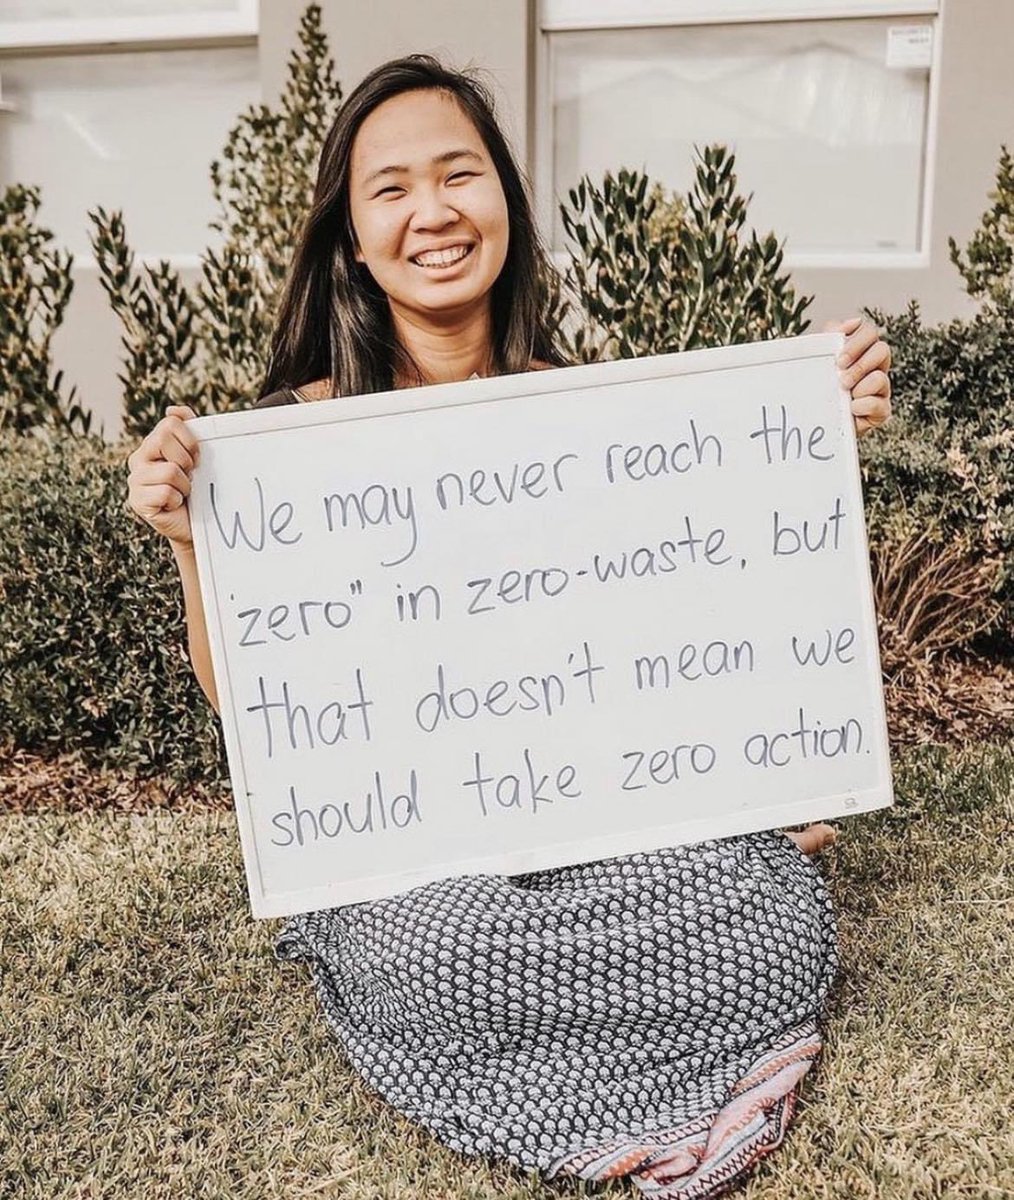 We may never reach the
"zero" in zero-waste, but
that doesn't mean we
should take zero action.